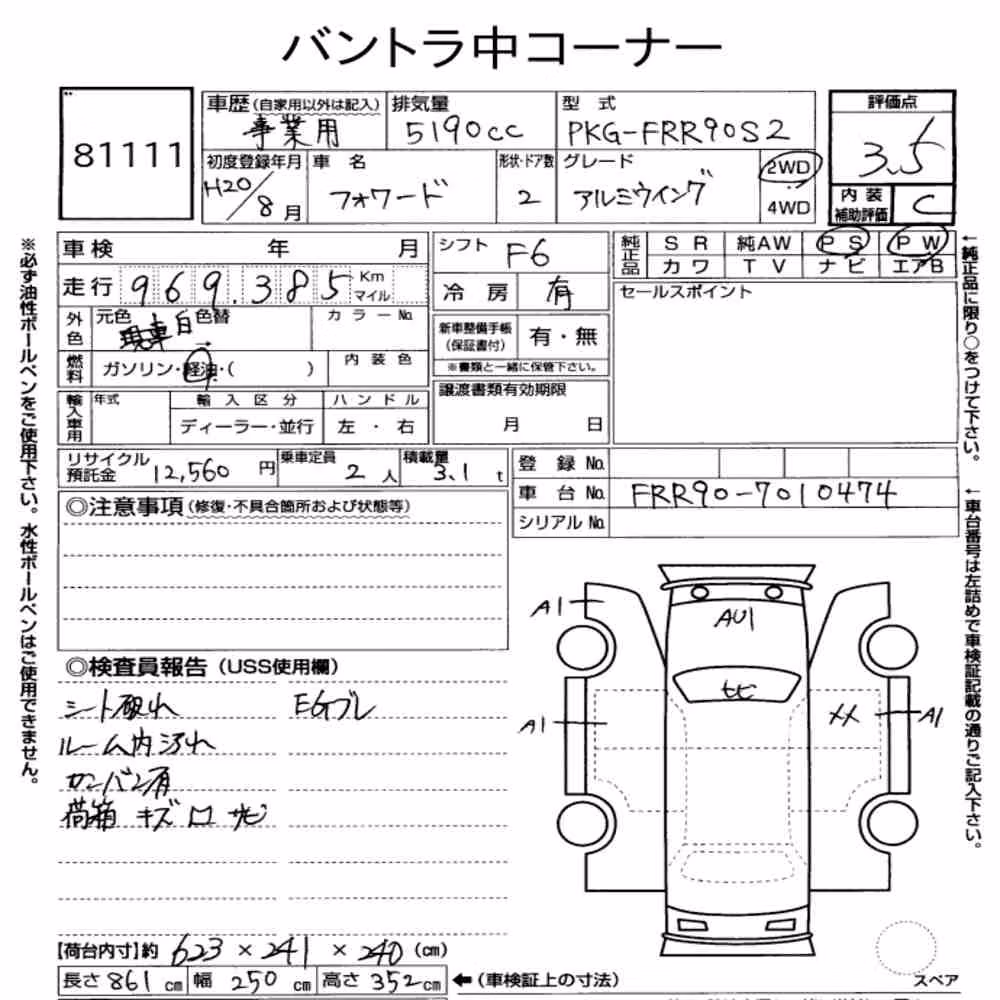 バントラ中コーナー
81111
車歴(自家用以外は記入) 事業用
排気量 5190cc
型式 PKG-FRR90S2
評価点 3.5
初度登録年月 H20/8月
車名 フォワード
形状・ドア数 2
グレード アルミウイング
2WD
4WD
内装補助評価 C
車検 年 月
シフト F6
純正品 SR 純AW PS PW
カワ TV ナビ エアB
走行 969.385 Km マイル
冷房 有
セールスポイント
外色 元色 現車白 色替 →
カラーNo.
新車整備手帳(保証書付) 有・無
※書類と一緒に保管下さい。
燃料 ガソリン・軽油・( )
内装色
譲渡書類有効期限 月 日
輸入車用 年式 輸入区分 ハンドル
ディーラー・並行 左・右
リサイクル預託金 12,560円
乗車定員 2人
積載量 3.1t
登録No.
車台No. FRR90-7010474
シリアルNo.
◎注意事項(修復・不具合箇所および状態等)
◎検査員報告(USS使用欄)
シート破れ EGブレ
ルーム内汚れ
カンバン有
荷箱 キズ 凹 サビ
A1
AU1
ヒビ
A1
XX
A1
【荷台内寸】約 623 × 241 × 240 (cm)
長さ861cm 幅250cm 高さ352cm ←(車検証上の寸法)
スペア
※必ず油性ボールペンをご使用下さい。水性ボールペンはご使用できません。
←純正品に限り○をつけて下さい。
←車台番号は左詰めで車検証記載の通りご記入下さい。